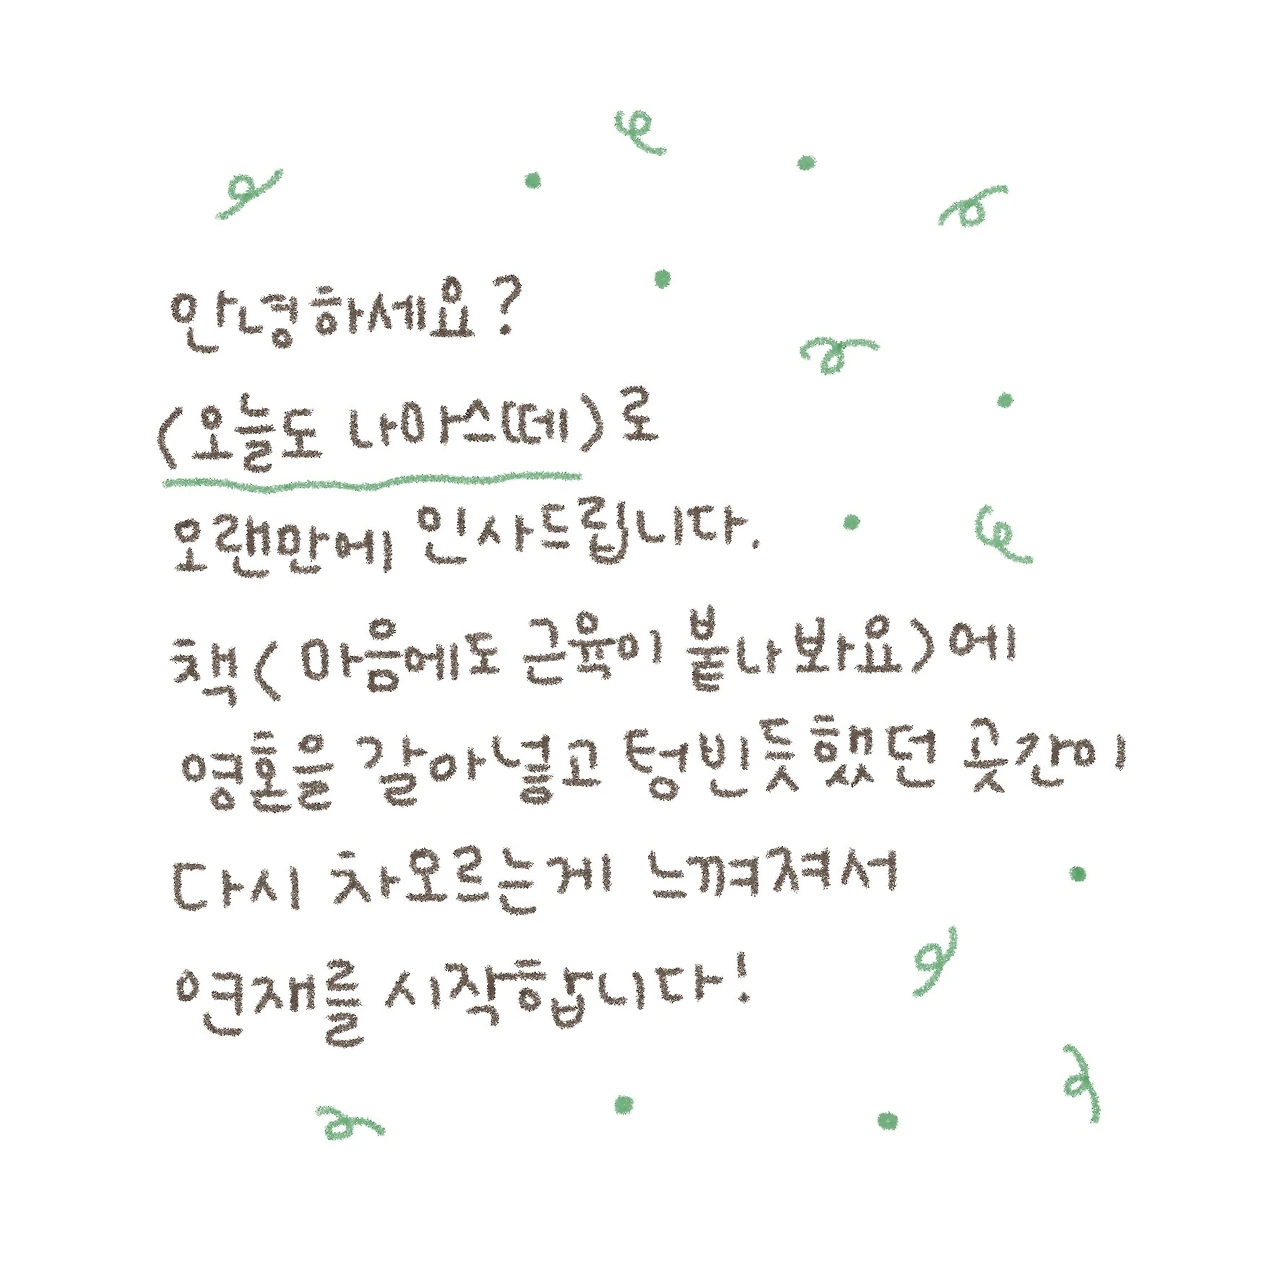 안녕하세요?
<오늘도 나마스떼>로
오랜만에 인사드립니다.
책<마음에도 근육이 붙나봐요>에
영혼을 갈아넣고 텅빈듯했던 곳간이
다시 차오르는게 느껴져서
연재를 시작합니다!